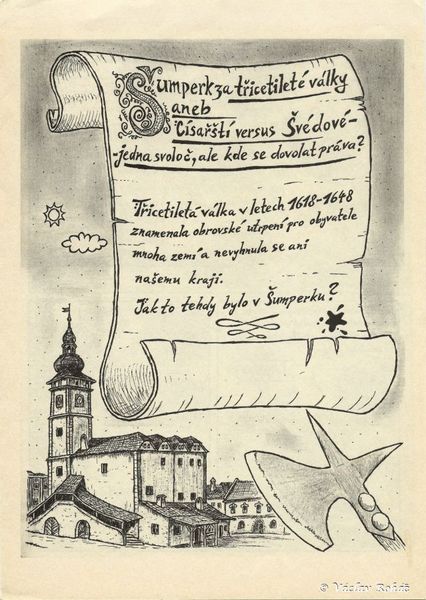 Šumperk za třicetileté války
aneb
Císařští versus Švédové-
-jedna svoloč, ale kde se dovolat práva?
Třicetiletá válka v letech 1618-1648
znamenala obrovské utrpení pro obyvatele
mnoha zemí a nevyhnula se ani
našemu kraji.
Jak to tehdy bylo v Šumperku?
© Václav Roháč